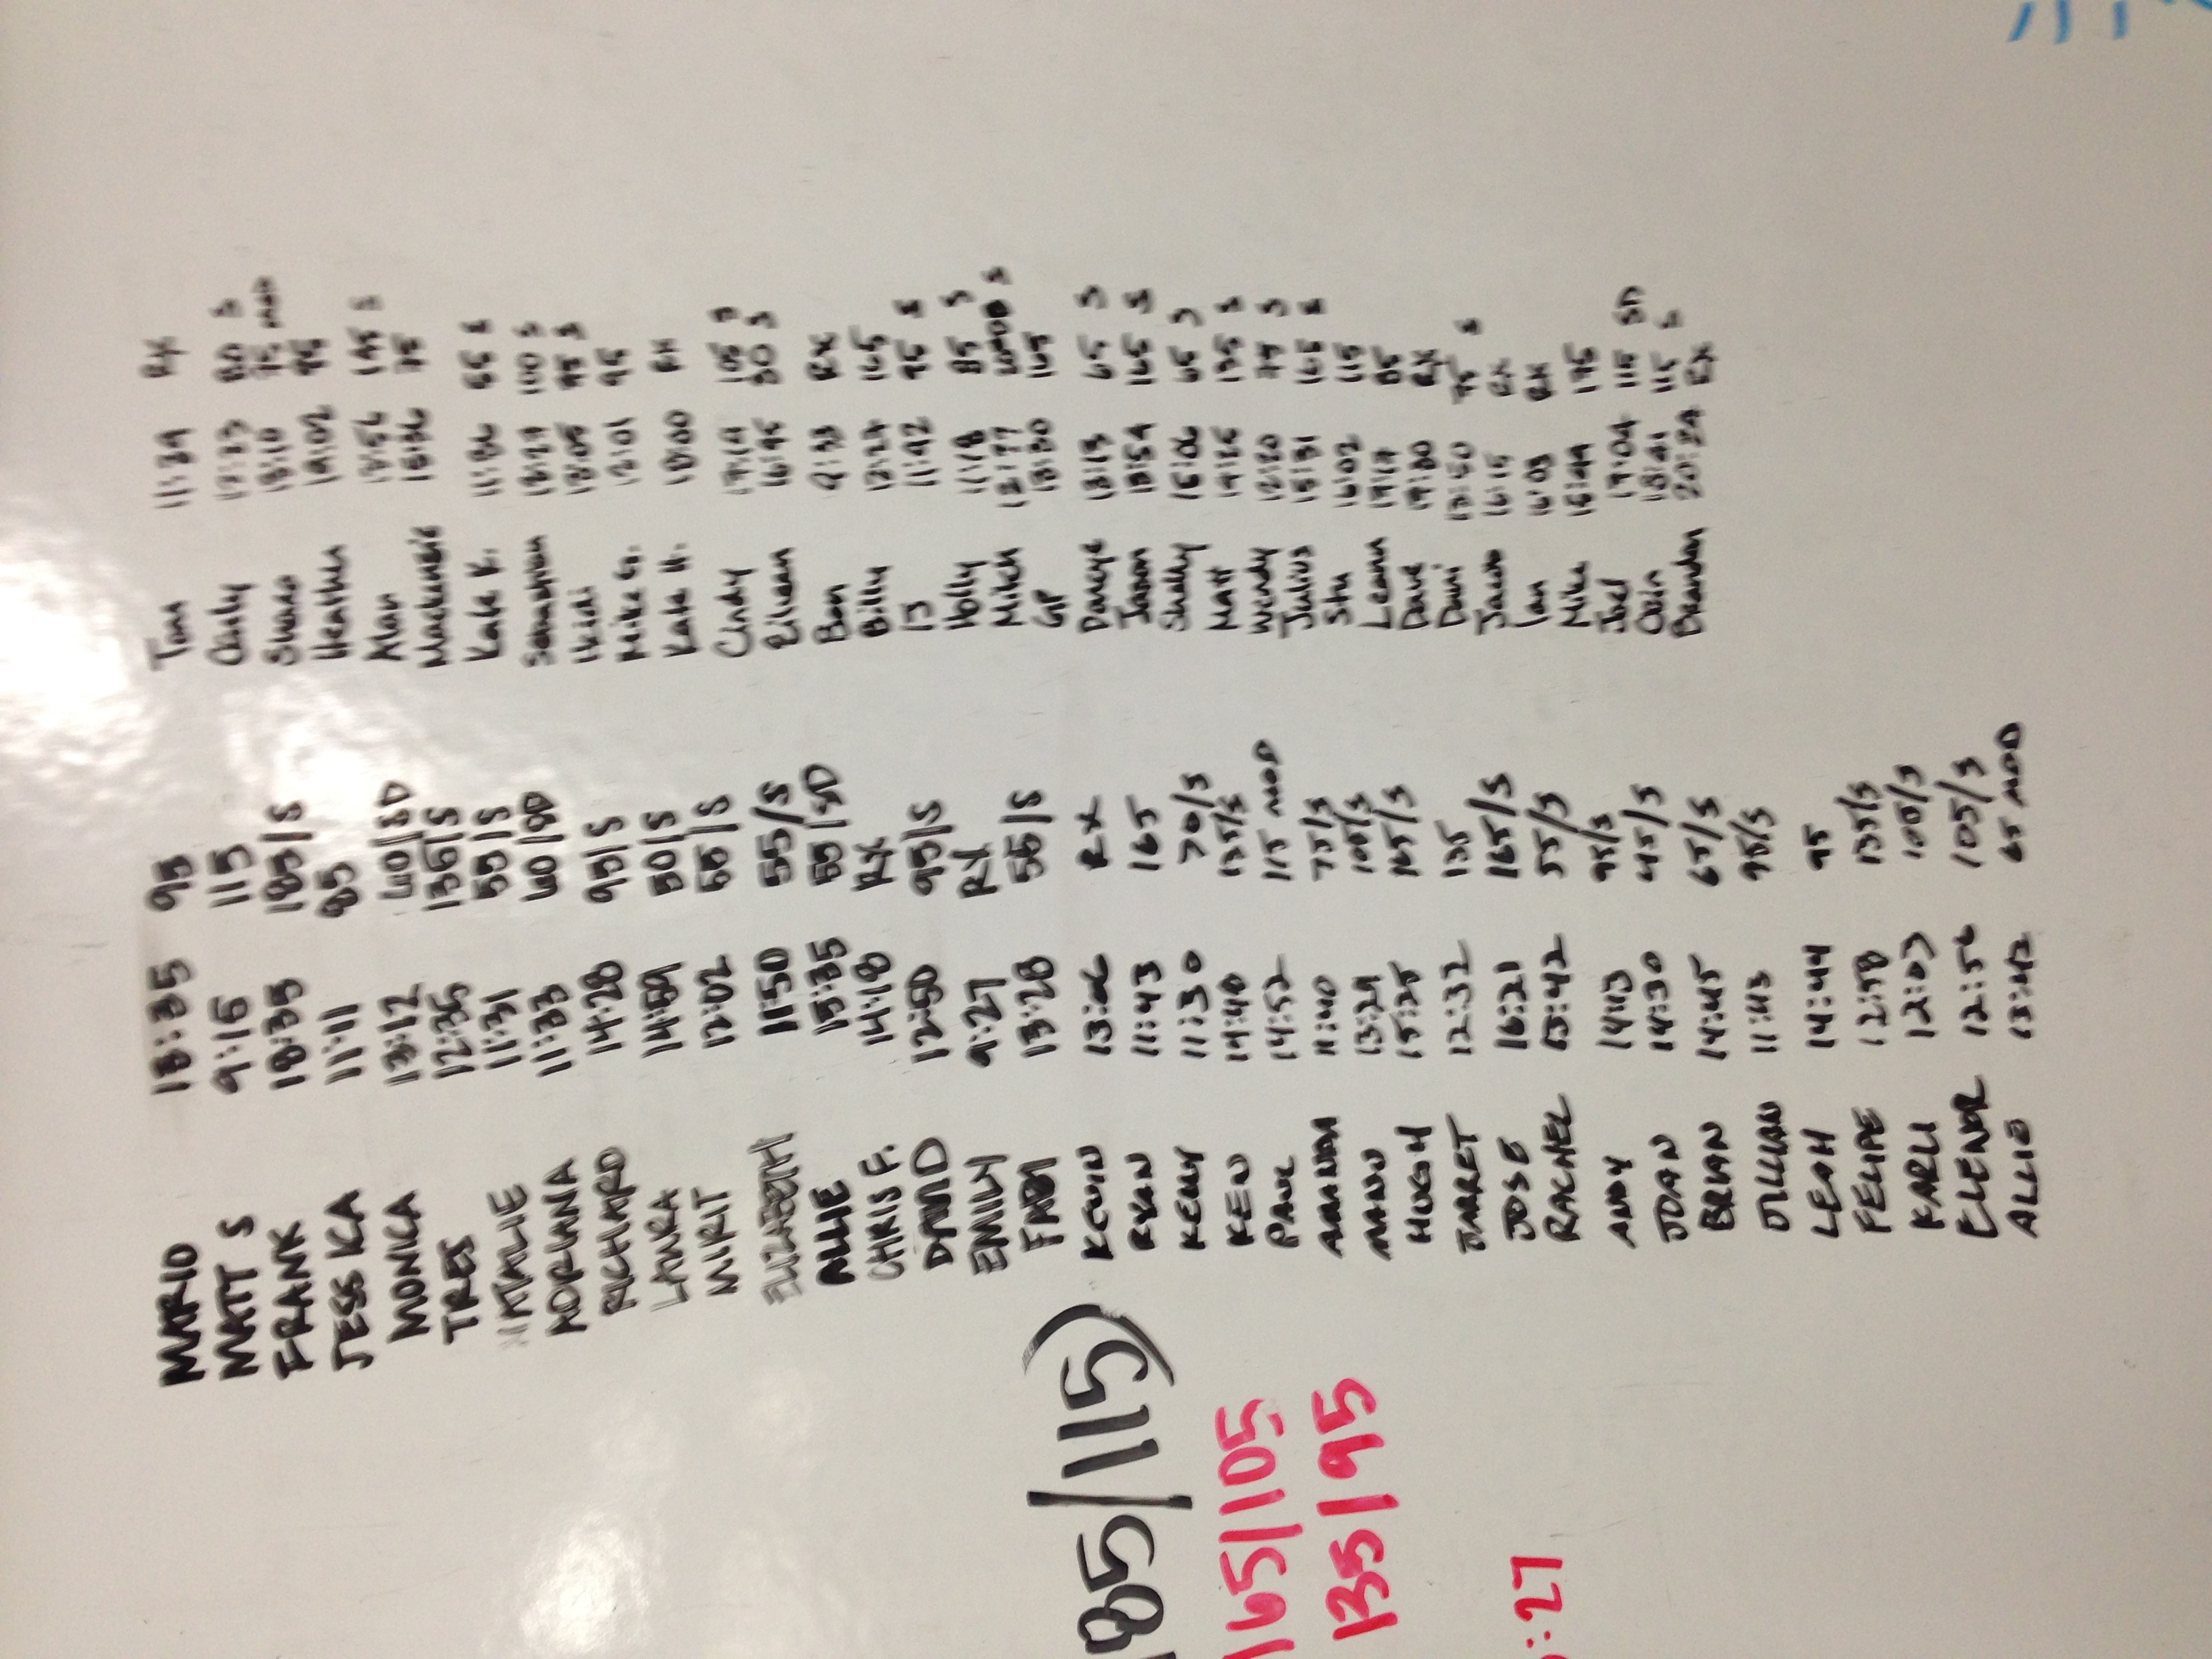 185/115)
165/105
135/95
:27
MARIO 18:35 95
MATT S 9:15 115
FRANK 18:35 185/S
JESSKA 11:11 85
MONIKA 13:12 60/SD
TRES 12:35 135/S
NATALIE 11:31 55/S
ADRIANA 11:33 60/SD
RICHARD 14:28 95/S
LAURA 14:59 50/S
MIRIT 12:02 55/S
ELIZABETH 11:50 55/S
ALLIE 15:35 55/SD
CHRIS F. 14:18 RX
DAVID 12:50 95/S
EMILY 9:27 RX
FABI 13:28 55/S
KEVIN 13:06 RX
RYAN 11:43 165
KELLY 11:30 70/S
KEN 14:40 135/S
PAUL 14:52 115 MOD
AMANDA 11:40 75/S
MANU 13:29
HUGH 15:25 165/S
JARRET 12:32 135
JOSE 16:21 165/S
RACHEL 13:42 55/S
ANDY 14:13 95/S
JOAN 14:30 45/S
BRIAN 14:45 65/S
JILLIAN 11:43 95/S
LEAH 14:44 95
FELIPE 12:58 135/S
KARLI 12:03 100/S
ELENOR 12:56 105/S
ALLIE 13:42 65 MOD
Tom 11:39 RX
S
Shana 13:10
Heather 14:02
Alan S
Mackenzie 75
Kate K. 11:36
Samantha 100 S
Heidi
Mike G. 12:01 95
Kate H. 13:00 RX
Cindy
Eileen 50 S
Ben 9:33 RX
Billy 165
11:42
Holly 11:18 85 S
Mitch
GP 13:30 165
Darcye 13:13 65 S
Jason 13:54 165 S
Shelly 15:06 65 S
Matt 135 S
Wendy 12:20 S
Julius 15:31 165
Stu 16:02 115
Leann 85
Dave RX
Dani 75 S
Jacob 16:15 RX
Ian 16:03 RX
Mike 15:44 175
Joel 17:04 115 SD
18:41 115 S
Brandon 20:24 RX